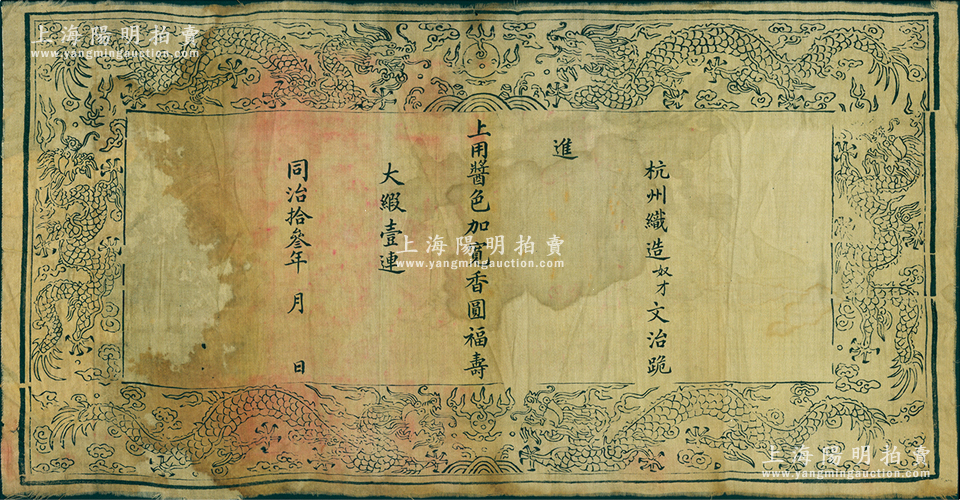 杭州織造奴才文治跪
進
上用醬色加重香圓福壽
大緞壹連
同治拾叄年 月 日
上海陽明拍賣
www.yangmingauction.com
上海陽明拍賣
www.yangmingauction.com
上海陽明拍賣
www.yangmingauction.com